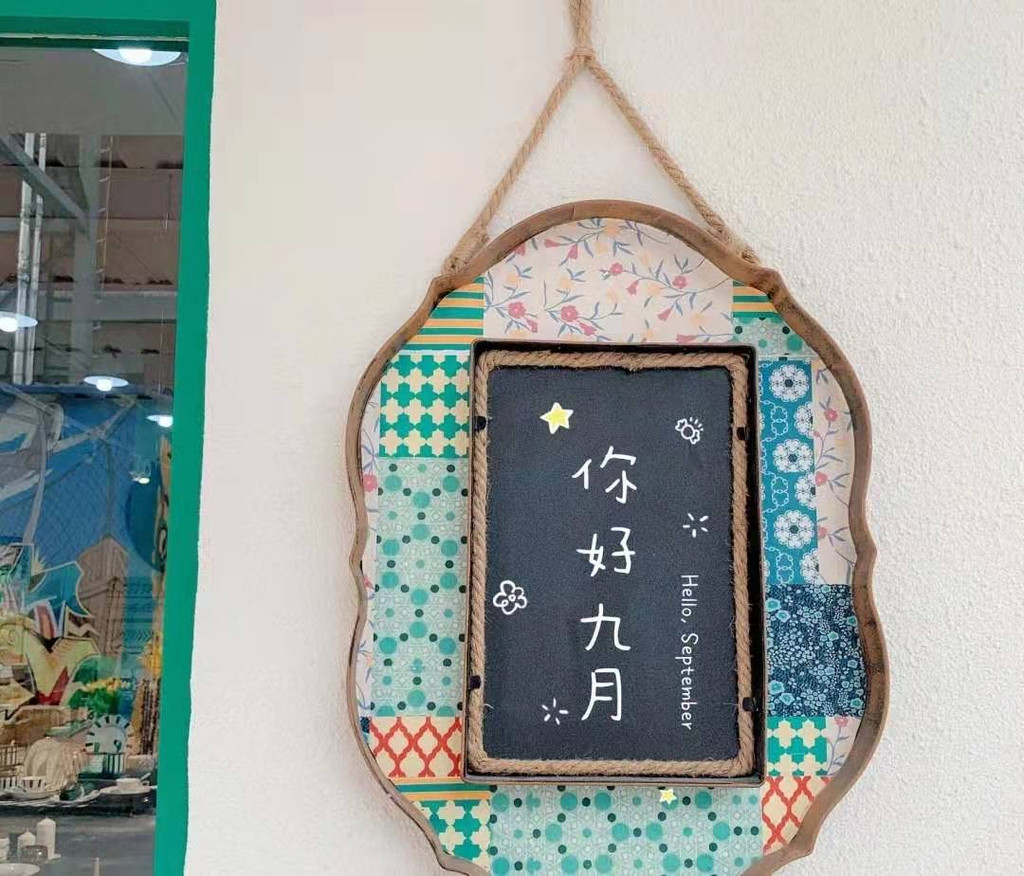 你好九月
Hello, September